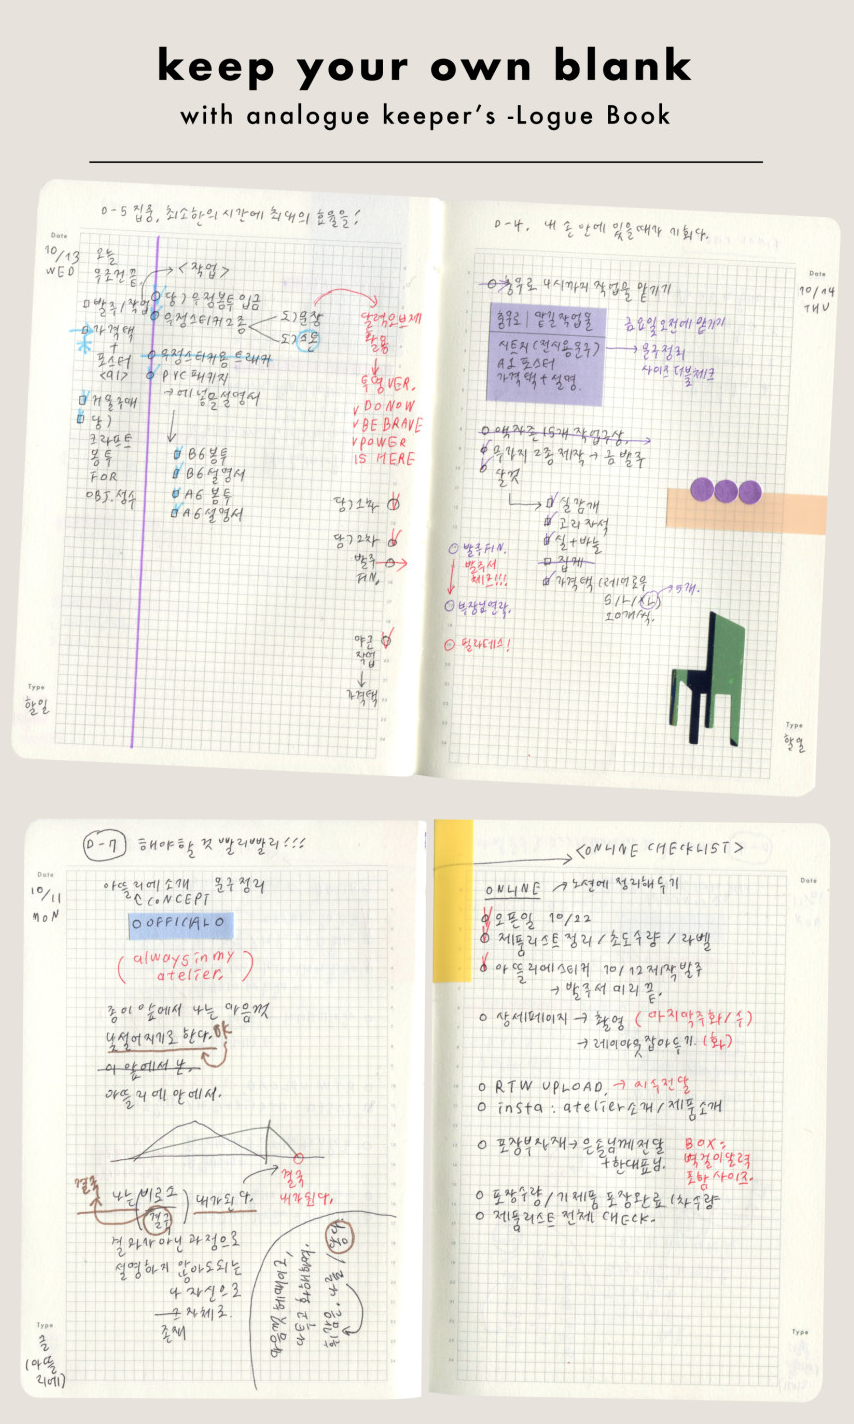 keep your own blank
with analogue keeper's -Logue Book
D-5 집중, 최소한의 시간에 최대의 효율을!
Date
10/13
WED
오늘
무조건 끝.
발주/작업
가격택
+
포스터
<A1>
거울구매
당)
크라프트
봉투
FOR
OBJ.성수
<작업>
당) 우정봉투 입금
우정스티커 2종
도)문장
도)
우정스티커용 트래커
PVC 패키지
→ 에 넣을 설명서
B6 봉투
B6 설명서
A6 봉투
A6 설명서
달력오브제
활용
투명 VER.
DO NOW
BE BRAVE
POWER
IS HERE
당)1차
당)2차
발주
FIN.
야근
작업
가격택
Type
할일
D-4. 내 손 안에 있을때가 기회다.
Date
10/14
THU
충무로 4시까지 작업물 맡기기
충무로 | 맡길작업물
시트지(전시용문구)
A1 포스터
가격택+설명.
금요일 오전에 맡기기
문구정리
사이즈 더블체크
액자존 15개 작업구상.
무가지 2종 제작 → 금 발주
살것
실감개
고리자석
실+바늘
집게
가격택 (레이로우
S/L/XL)
20개/식.
5개.
발주FIN.
발주서
체크!!!
부장님연락.
필라테스!
Type
할일
D-7 해야할 것 빨리빨리!!!
Date
10/11
MON
아뜰리에소개 문구정리
CONCEPT
OFFICIAL
(always in my
atelier.)
종이 앞에서 나는 마음껏
낯설어지기로 한다. OK
이 앞에서 난,
아뜰리에 안에서.
결국
내가된다.
결국
나는 (비로소 내가된다.
결국)
결과가 아닌 과정으로
설명하지 않아도되는
나 자신으로
그 자체로.
존재
Type
글
(아뜰
리에)
<ONLINE CHECKLIST>
Date
ONLINE → 노션에 정리해두기
오픈일 10/22
제품리스트 정리 / 초도수량 / 라벨
아뜰리에스티커 10/12 제작발주
→ 발주서 미리 끝.
상세페이지 → 촬영 (마지막주 화/수)
→ 레이아웃잡아두기. (화)
RTW UPLOAD. → 지속전달
insta : atelier소개/제품소개
포장부자재 → 은솔님께 전달
+한대표님.
BOX:
벽걸이달력
포함 사이즈.
포장수량/기제품 포장완료 1차수량
제품리스트 전체 CHECK.
Type